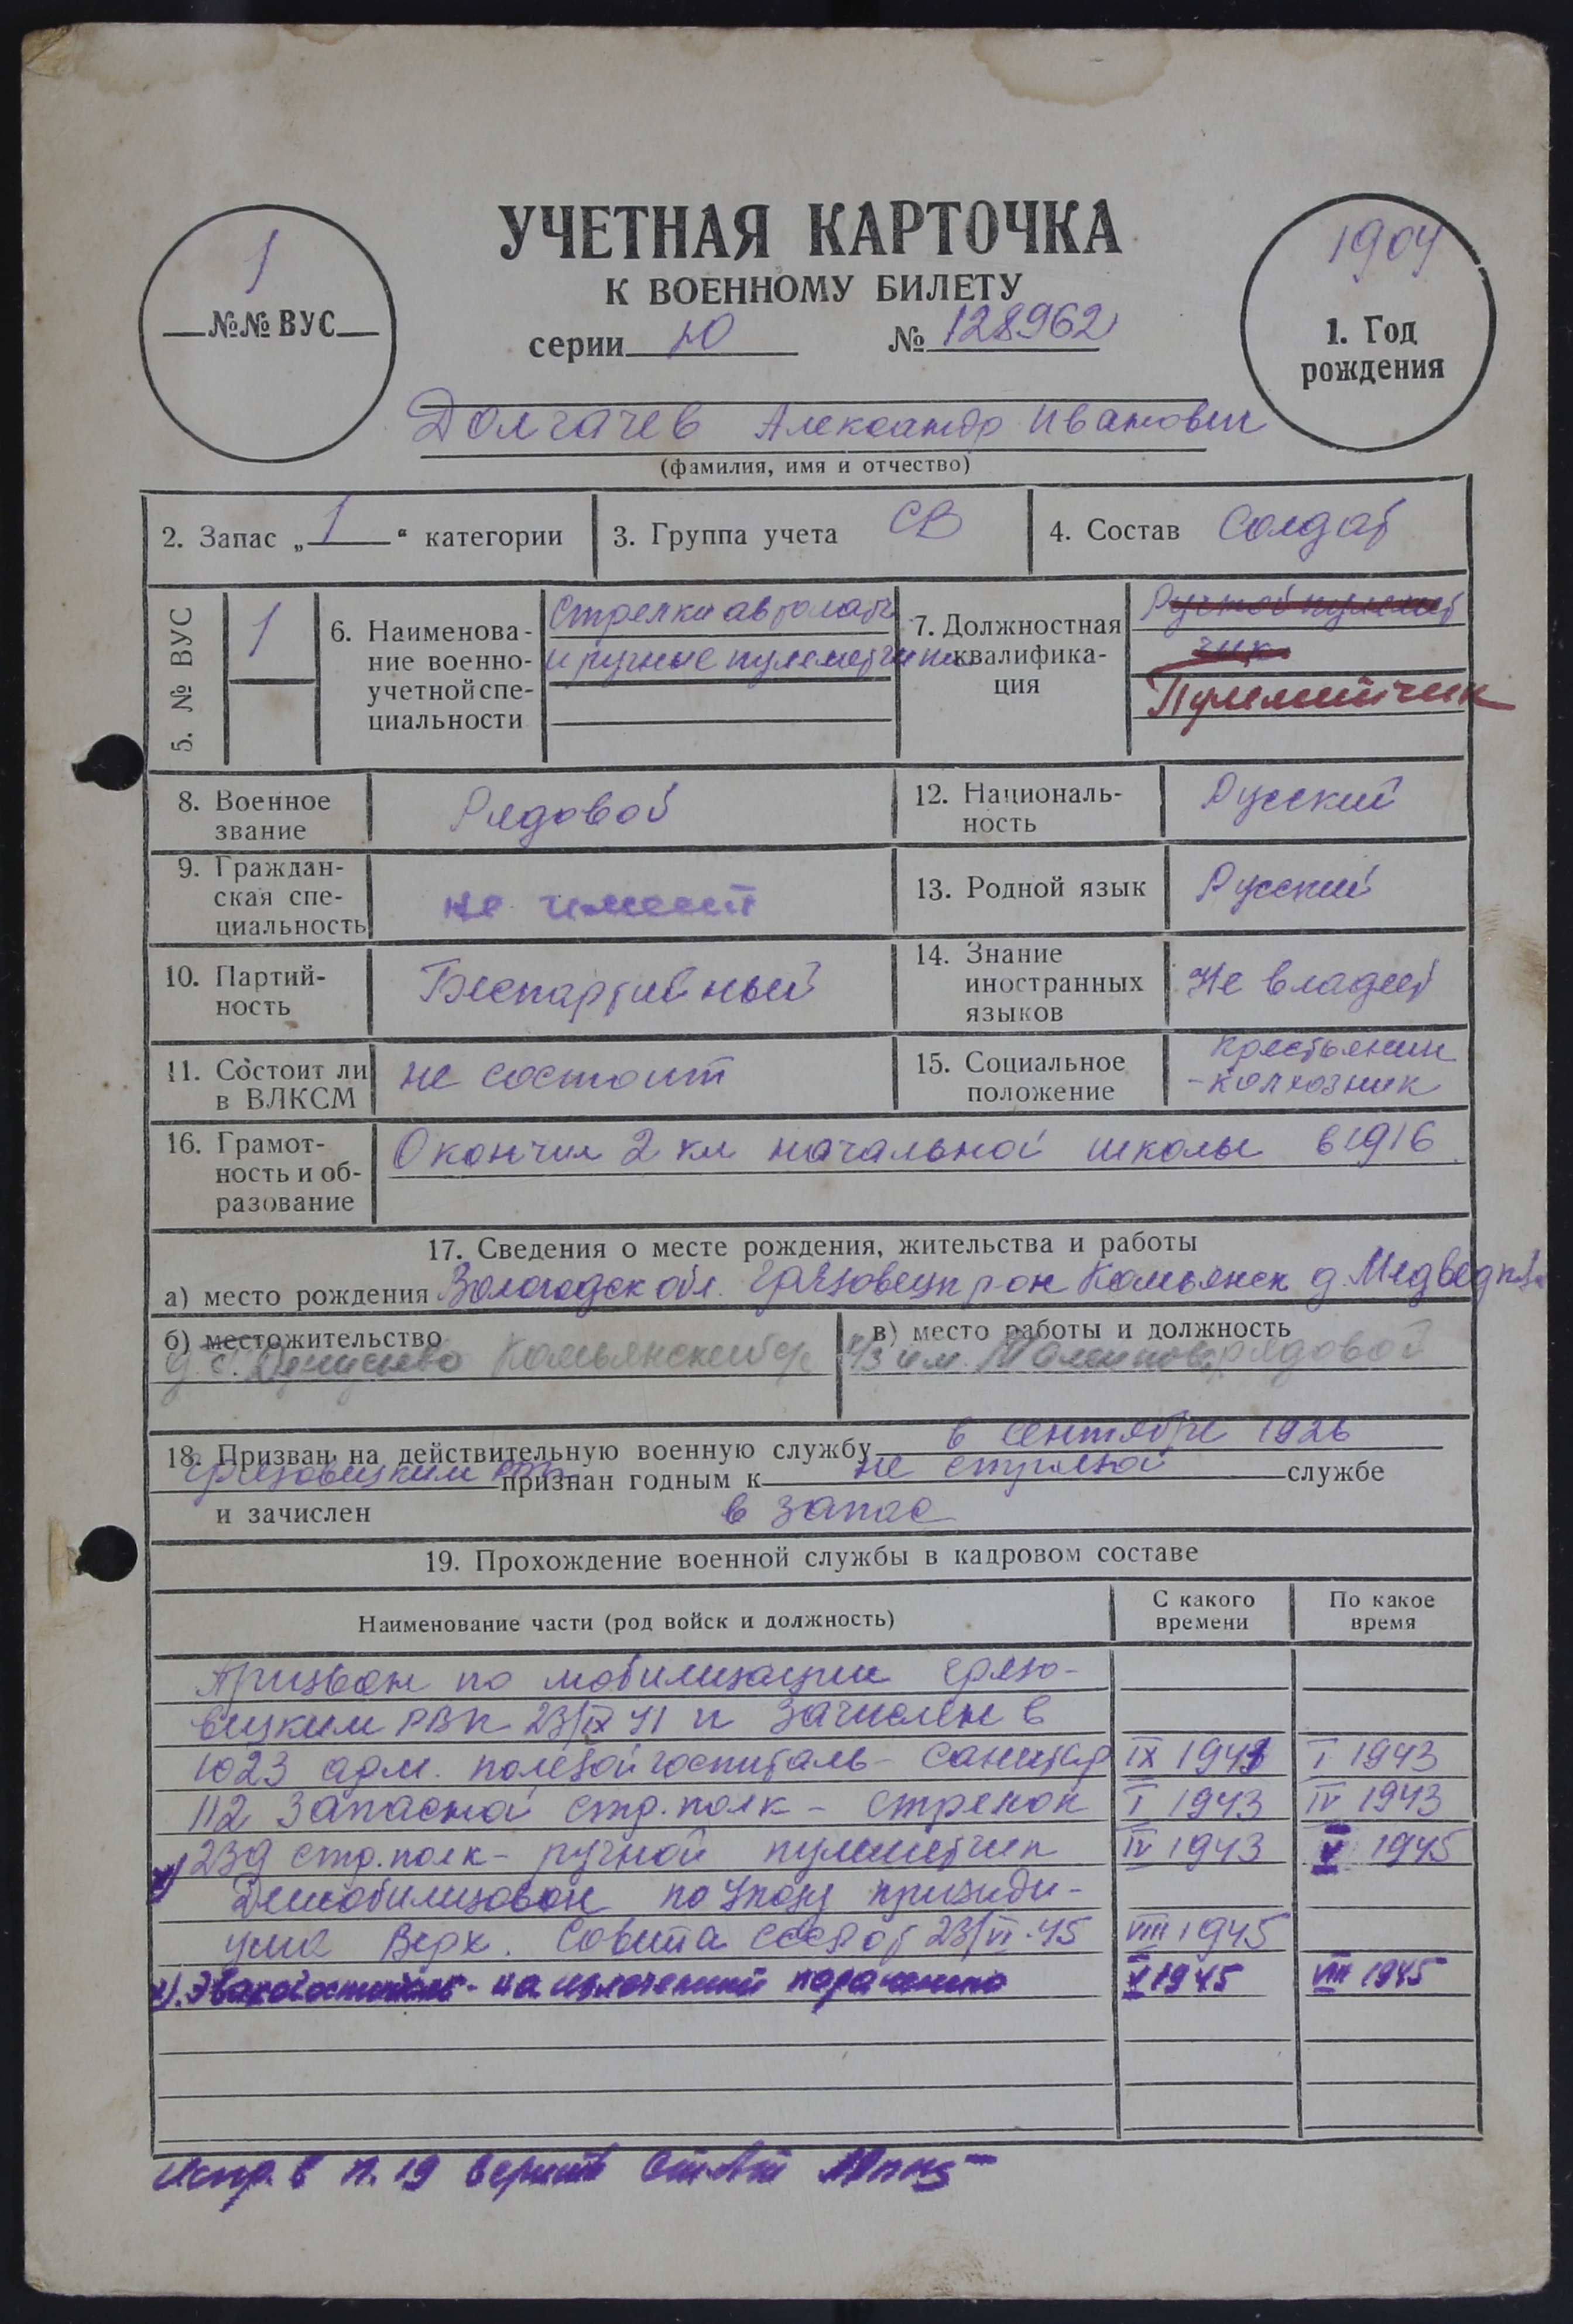 1
№№ ВУС
УЧЕТНАЯ КАРТОЧКА
К ВОЕННОМУ БИЛЕТУ
серии Ю № 128962
1904
1. Год
рождения
Долгачев Александр Иванович
(фамилия, имя и отчество)
2. Запас „1“ категории
3. Группа учета СВ
4. Состав Солдат
5. № ВУС
1
6. Наименова-
ние военно-
учетной спе-
циальности
Стрелки автоматч
и ручные пулеметчики
7. Должностная
квалифика-
ция
Ручной пулемет
чик
Пулеметчик
8. Военное
звание
Рядовой
12. Националь-
ность
Русский
9. Граждан-
ская спе-
циальность
не имеет
13. Родной язык
Русский
10. Партий-
ность
Беспартийный
14. Знание
иностранных
языков
Не владеет
11. Состоит ли
в ВЛКСМ
не состоит
15. Социальное
положение
Крестьянин
-колхозник
16. Грамот-
ность и об-
разование
Окончил 2 кл начальной школы в 1916
17. Сведения о месте рождения, жительства и работы
а) место рождения Вологодск обл. Грязовецк р-он Комьянск д.
б) местожительство
д. Комьянский с/с
в) место работы и должность
к/з им. рядовой
18. Призван на действительную военную службу в сентябре 1926
Грязовецким РВК признан годным к не строевой службе
и зачислен в запас
19. Прохождение военной службы в кадровом составе
Наименование части (род войск и должность)
С какого
времени
По какое
время
Призван по мобилизации Грязо-
вецким РВК 23/IX 41 и зачислен в
1023 арм. полевой госпиталь - санитар IX 1941 I 1943
112 Запасной стр. полк - стрелок I 1943 IV 1943
239 стр. полк - ручной пулеметчик IV 1943 V 1945
Демобилизован по Указу президи-
ума Верх. Совета СССР от 23/VI-45 VIII 1945
х). Эвакогоспиталь - на излечении по ранению V 1945 VIII 1945
Испр. в п. 19 верить